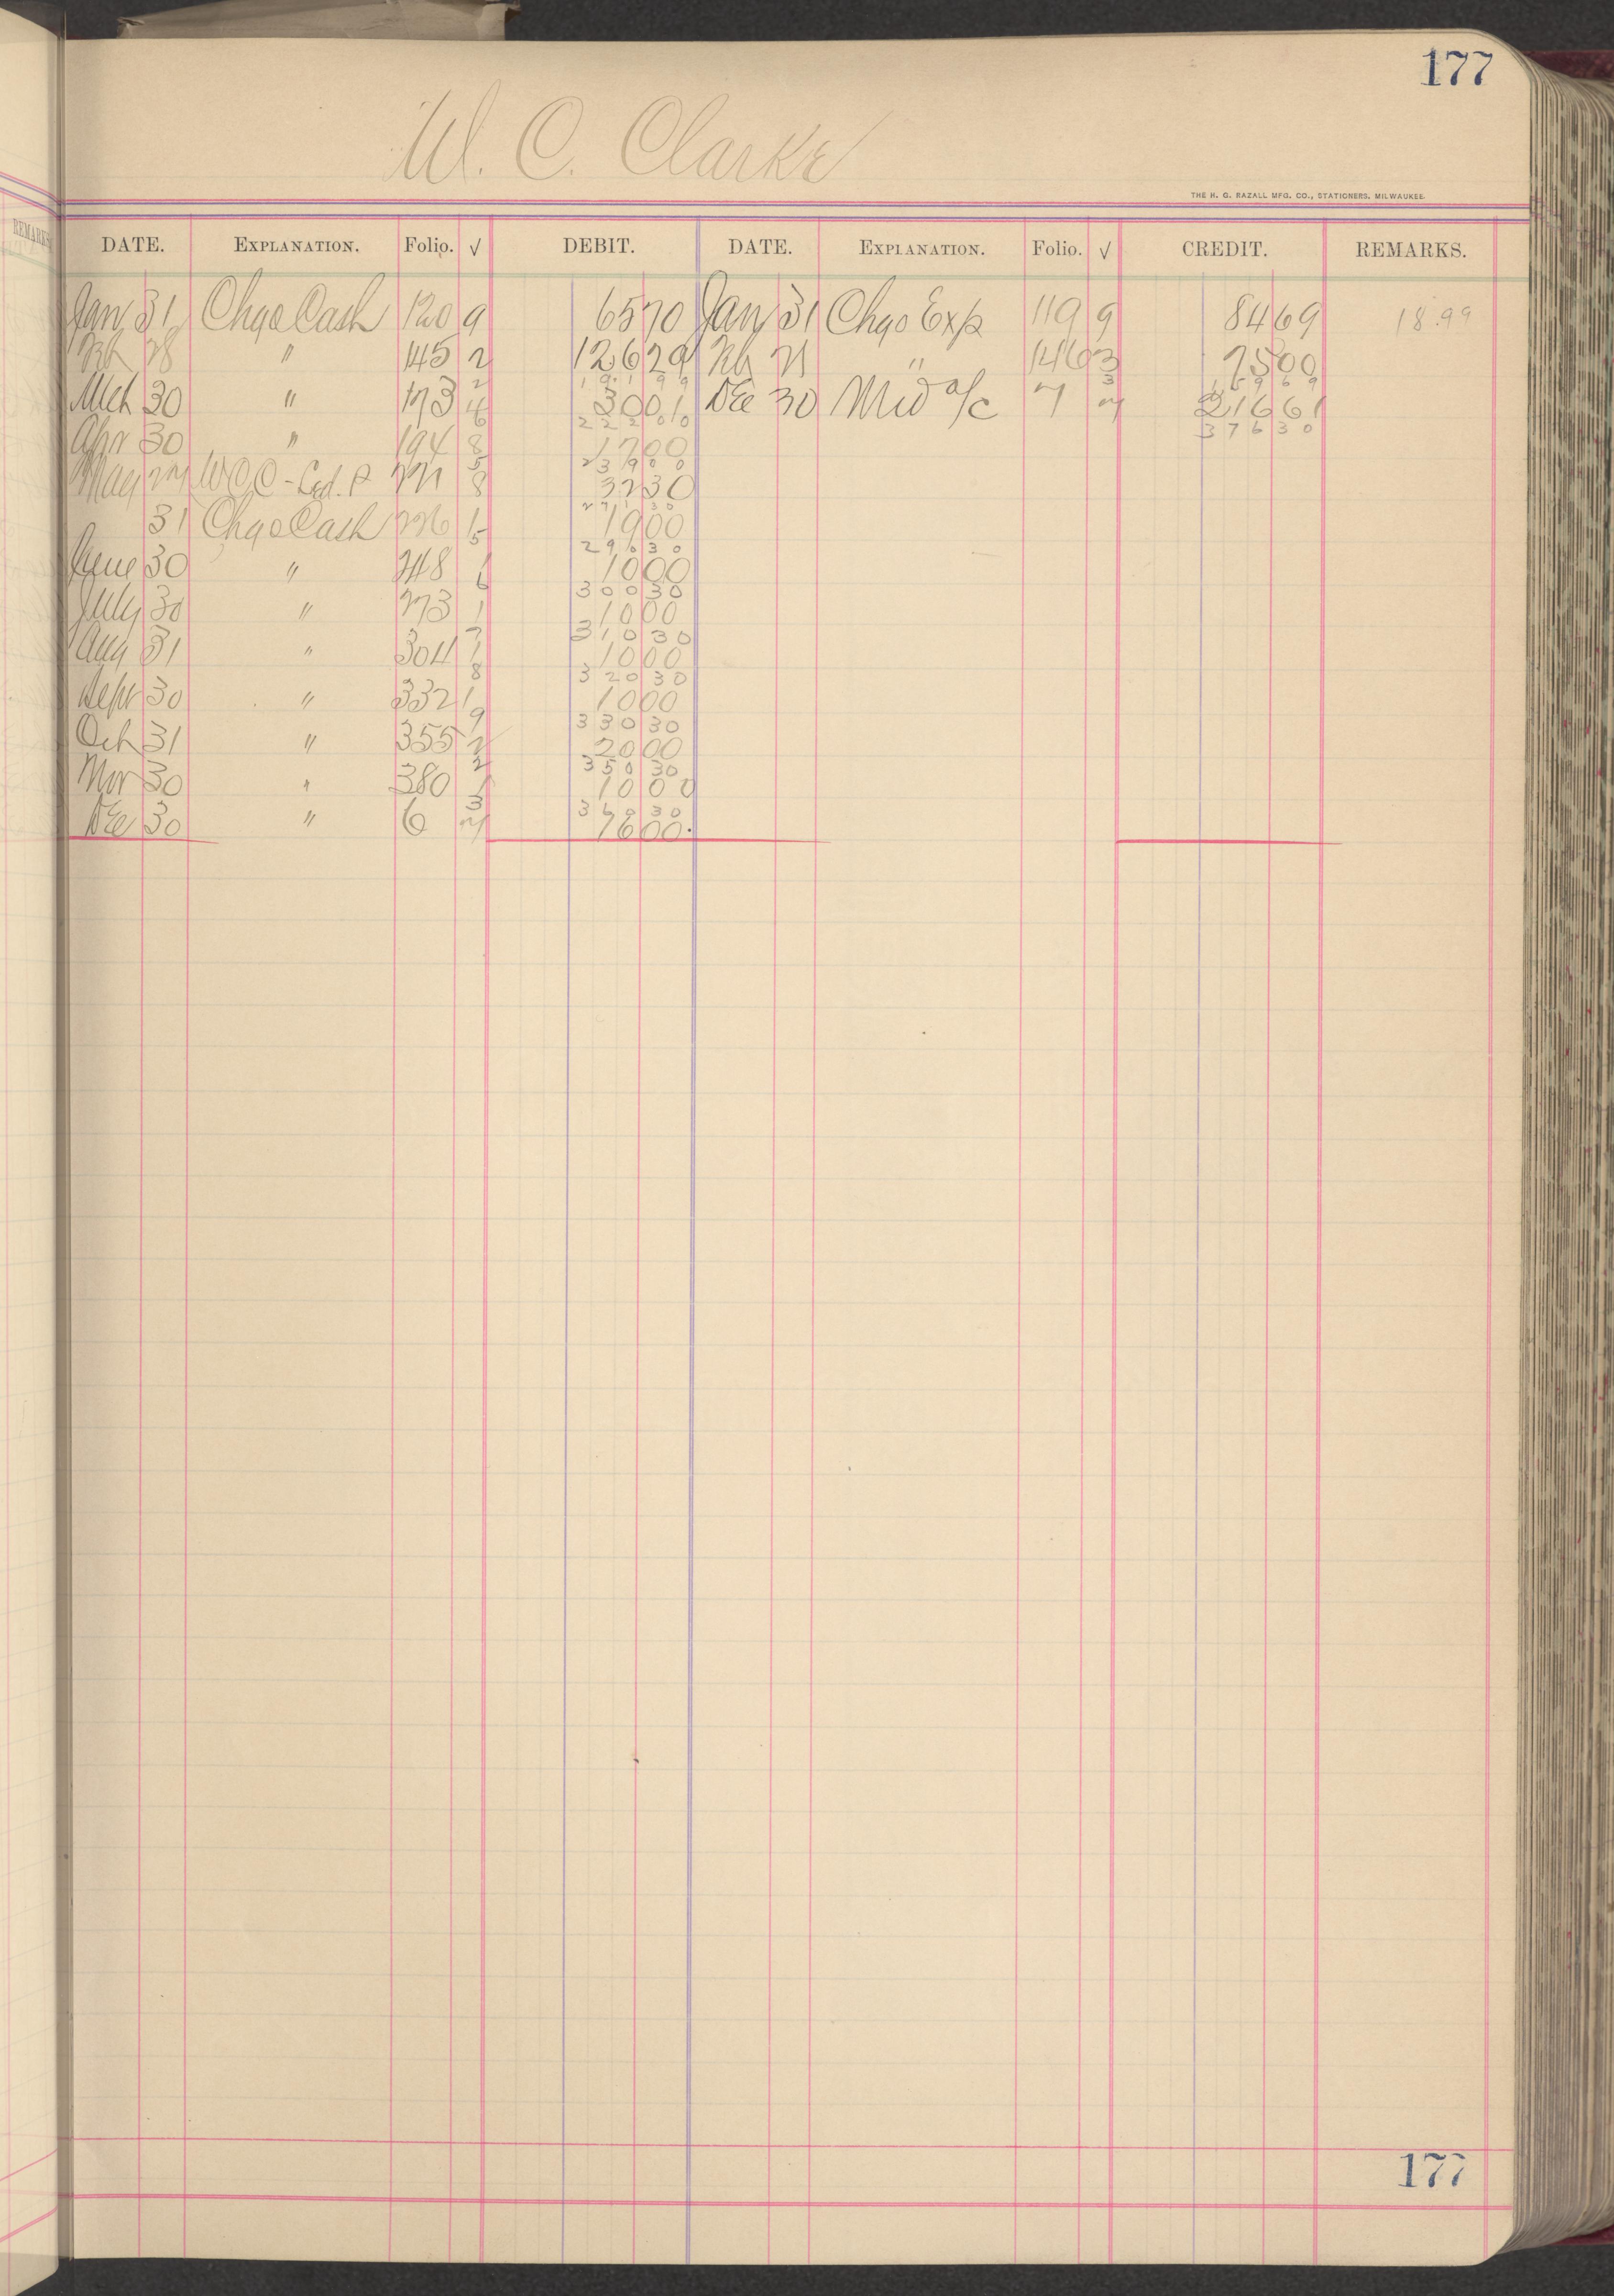 177
W. C. Clarke
THE H. G. RAZALL MFG. CO., STATIONERS, MILWAUKEE.
REMARKS
DATE. EXPLANATION. Folio. √ DEBIT. DATE. EXPLANATION. Folio. √ CREDIT. REMARKS.
Jan 31 Chgo Cash 120 9 65 70 Jan 31 Chgo Exp 119 9 84 69 18.99
Feb 28 " 145 2 126 29 Feb 21 " 146 3 75 00
191 99 159 69
Mch 30 " 173 30 01 Dec 30 Md a/c 7 216 61
222 00 376 30
Apr 30 " 194 8 17 00
239 00
May W C C - Led. P. 8 32 30
271 30
31 Chgo Cash 226 19 00
290 30
June 30 " 248 10 00
300 30
July 30 " 273 1 10 00
310 30
Aug 31 " 304 10 00
320 30
Sept 30 " 332 10 00
330 30
Oct 31 " 355 2 20 00
350 30
Nov 30 " 380 10 00
360 30
Dec 30 " 6 16 00
177